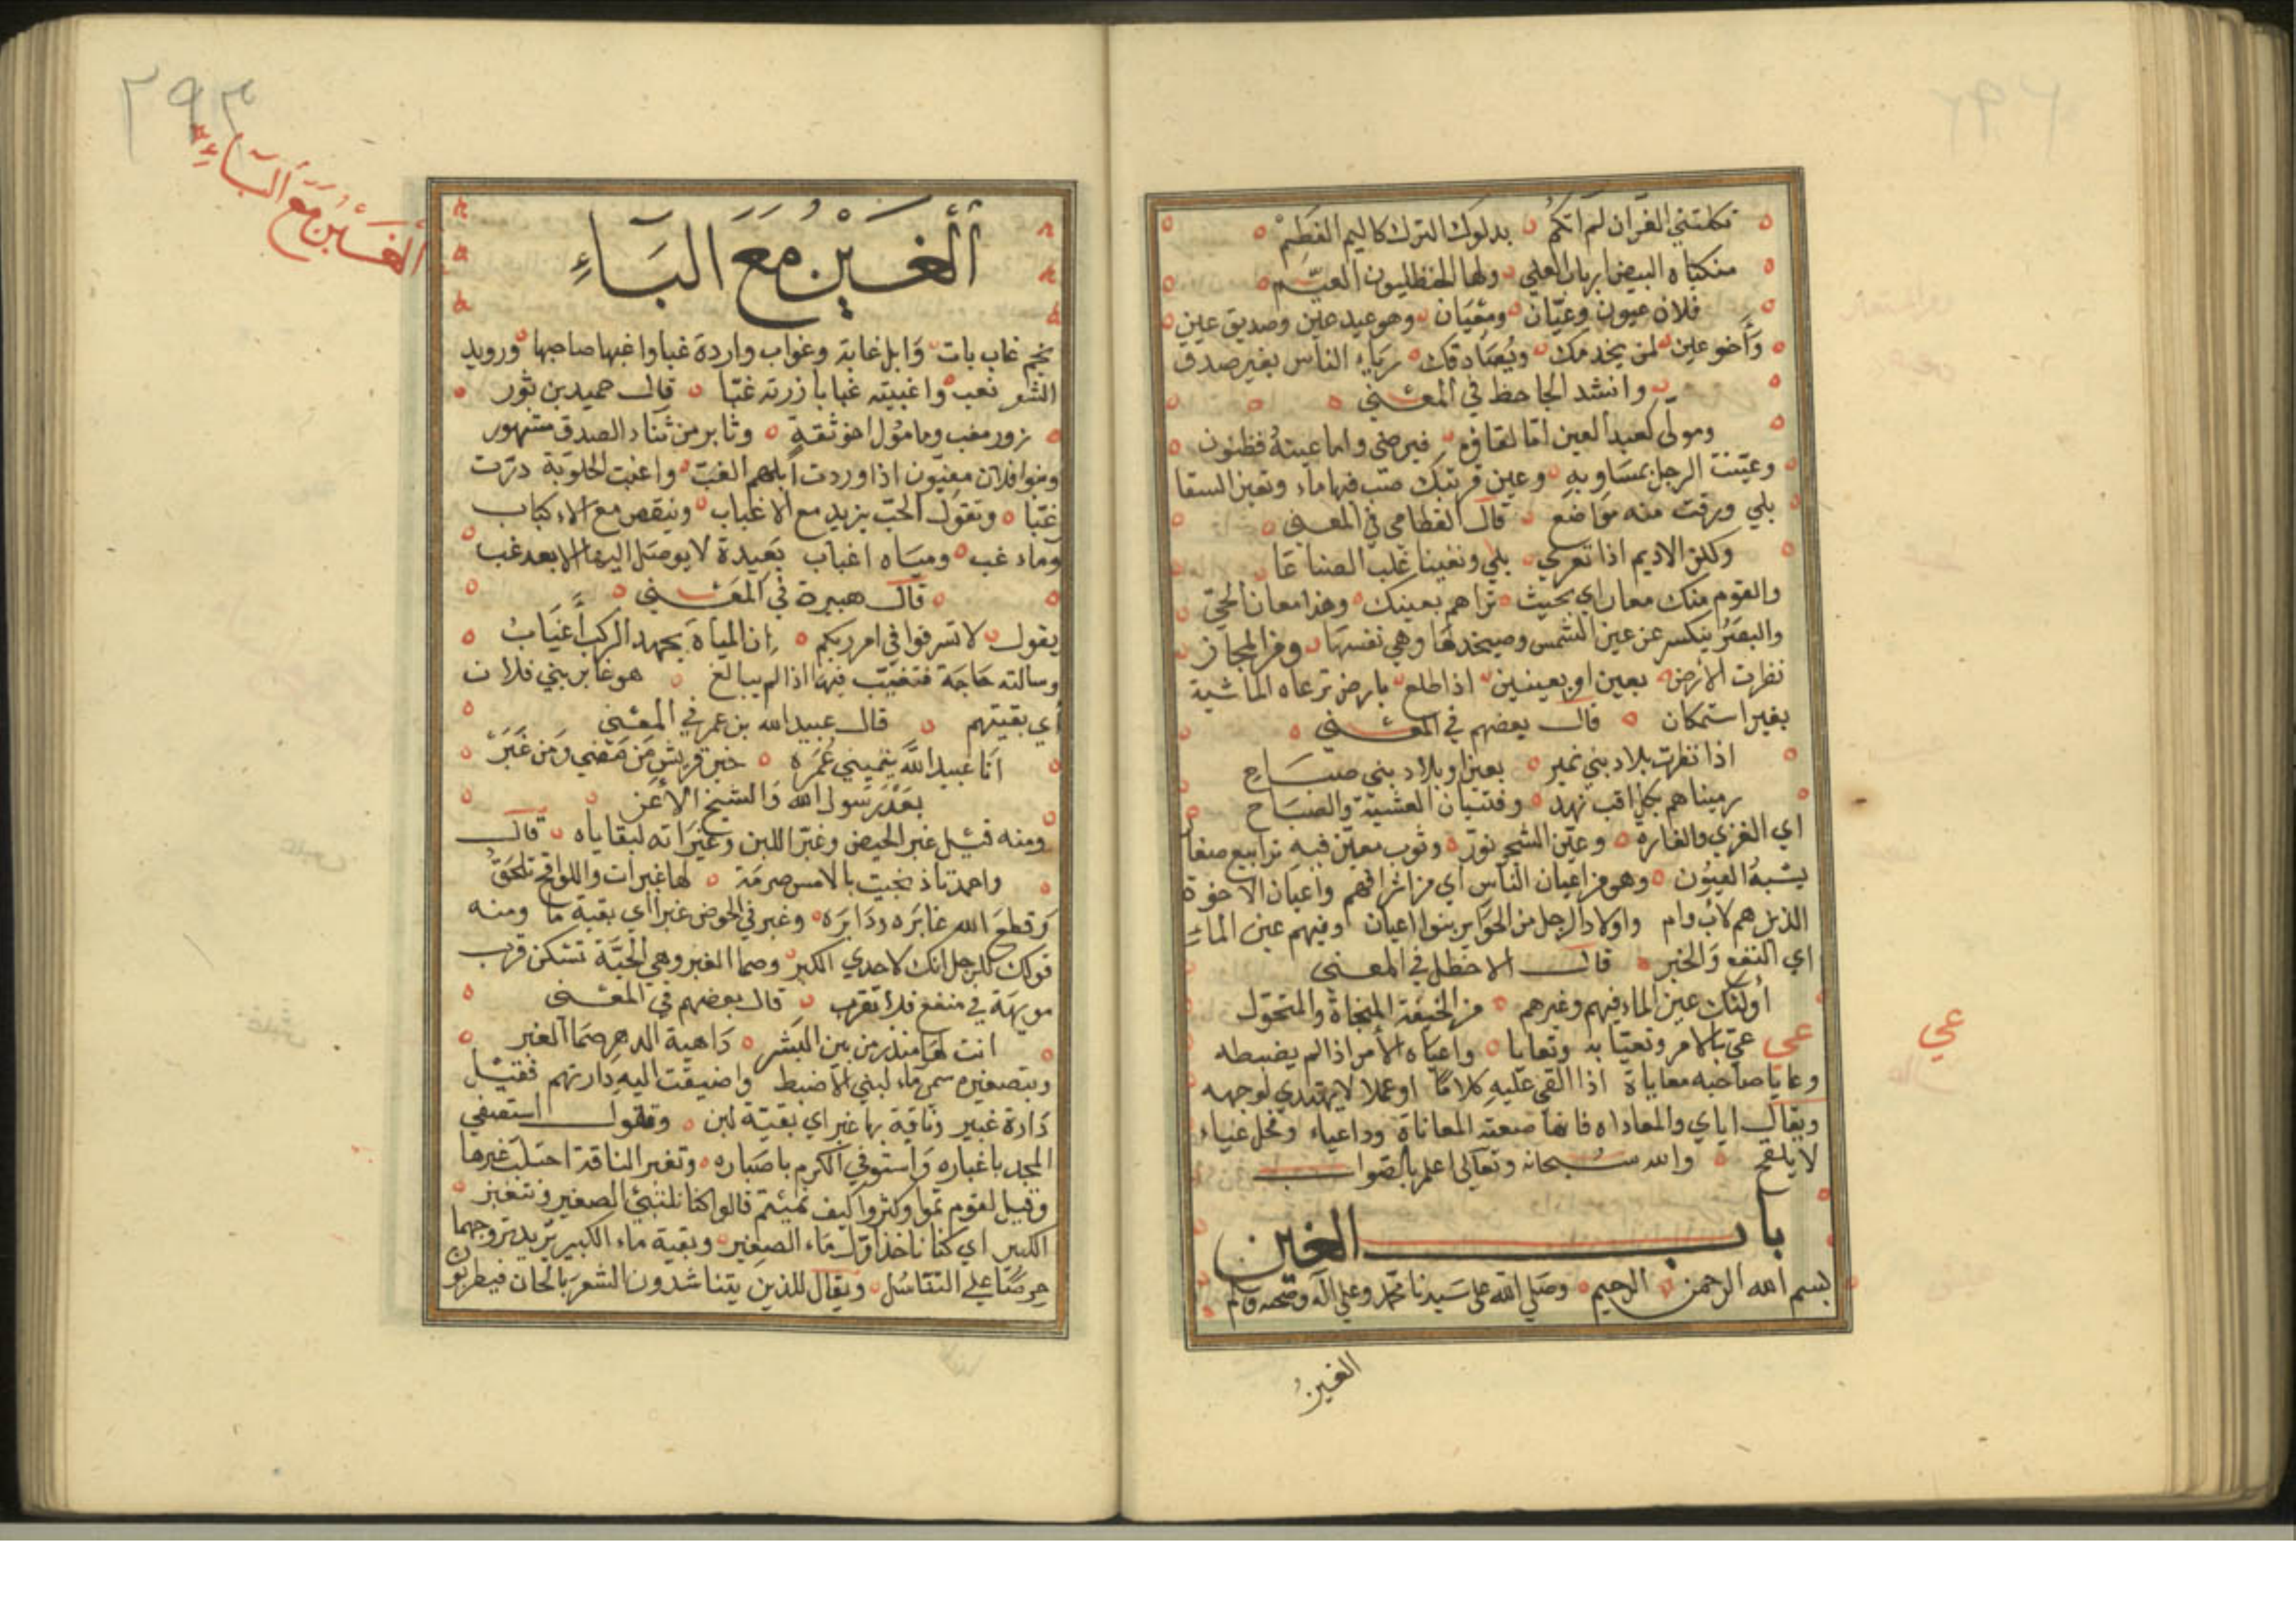 فلان عيون وعيان ومعيان وهو عبد عين وصديق عين
وأخو عين لمن يخدمك ويصادقك رياء الناس بغير صدق
وانشد الجاحظ في المعنى
ومولى كعبد العين اما لقاؤه فيرضى واما غيبه فظنون
وعينت الرجل بمساويه وعين قربتك صب فيها ماء وتعين السقا
بلي ورقت منه مواضع قال القطامي في المعنى
ولكن الاديم اذا تعرى بلي وتعينا غلب الصناعا
والقوم منك معان اي بحيث تراهم بعينك وهذا معان الحي
والبصر ينكسر عن عين الشمس وصيخدها وهي نفسها ومن المجاز
نظرت الأرض بعين او بعينين اذا طلع بارض ترعاه الماشية
بغير استمكان قال بعضهم في المعنى
اذا نظرت بلاد بني نمير بعين او بلاد بني صباح
رميناهم بكل اقب نهد وفتيان العشية والصباح
اي الغزي والغاره وعين الشجر نور وثوب معين فيه ترابيع صغار
يشبه العيون وهو من اعيان الناس اي من اشرافهم واعيان الاخوة
الذين هم لأب وام واولاد الرجل من الحراير بنوا اعيان وفيهم عين الماء
اي النفع والخير قال الاخطل في المعنى
أولئك عين الماء فيهم وغيرهم من الخيفة المنجاة والمتحول
عي عي بالامر وتعيا به وتعايا واعياه الأمر اذا لم يضبطه
وعايا صاحبه معاياة اذا القى عليه كلاما او عملا لا يهتدي لوجهه
ويقال اياي والمعاداه فانها صنعة المعاناة وداعياء وفحل عياء
لا يلقح والله سبحانه وتعالى اعلم بالصواب
باب الغين
بسم الله الرحمن الرحيم وصلى الله على سيدنا محمد وعلى آله وصحبه وسلم
الغين
عي
٢٩٣
ألغين مع الباء
ألغين مع الباء
نجم غاب بات وابل غابة وغواب واردة غبا واغبها صاحبها ورويد
الشعر نعب واغببته غبابا زرته غبا قال حميد بن ثور
زور مغب ومامول اخو ثقة وثابر من ثناء الصدق مشهور
وبنوا فلان مغبون اذا وردت أبلهم الغب واغبت الحلوبة درت
غبا وتقول الحب يزيد مع الاغباب وينقص مع الاكباب
وماء غب ومياه اغباب بعيدة لا يوصل اليها الا بعد غب
قال هبيرة في المعنى
يقول لا تسرفوا في امر ريكم ان المياه بجهد الركب أغباب
وسالته حاجة فتغبب فيها اذا لم يبالغ هو غابر بني فلان
أي بقيتهم قال عبيد الله بن عمر في المعنى
انا عبيد الله ينميني عمره خير قريش من مضى ومن غبر
بعد رسول الله والشيخ الأغر
ومنه قيل غبر الحيض وغبر اللبن وغبراته لبقاياه قال
لها غبرات واللواقح تلحق
وقطع الله غابره ودابره وغبر في الحوض غبرا اي بقية ما ومنه
قولك للرجل انك لاحدي الكبر وصما الغبر وهي الحية تسكن قرب
مويهة في منقع فلا تقرب قال بعضهم في المعنى
انت لها منذر من بين البشر داهية الدهر صما الغبر
وبتصغيره سمي ماء لبني الأضبط واضيفت اليه دارتهم فقيل
دارة غبير وناقة بها غبر اي بقية لبن وتقول استصفي
المجد باغباره واستوفي الكرم باصباره وتغبر الناقة احتلب غبرها
وقيل لقوم نموا وكثروا كيف نميتم قالوا كنا نلتبئ الصغير ونتغبر
الكبير اي كنا ناخذ اول ماء الصغير وبقية ماء الكبير تريد تزوجهما
حرصا على التناسل ويقال للذين يتناشدون الشعر بالحان فيطربون